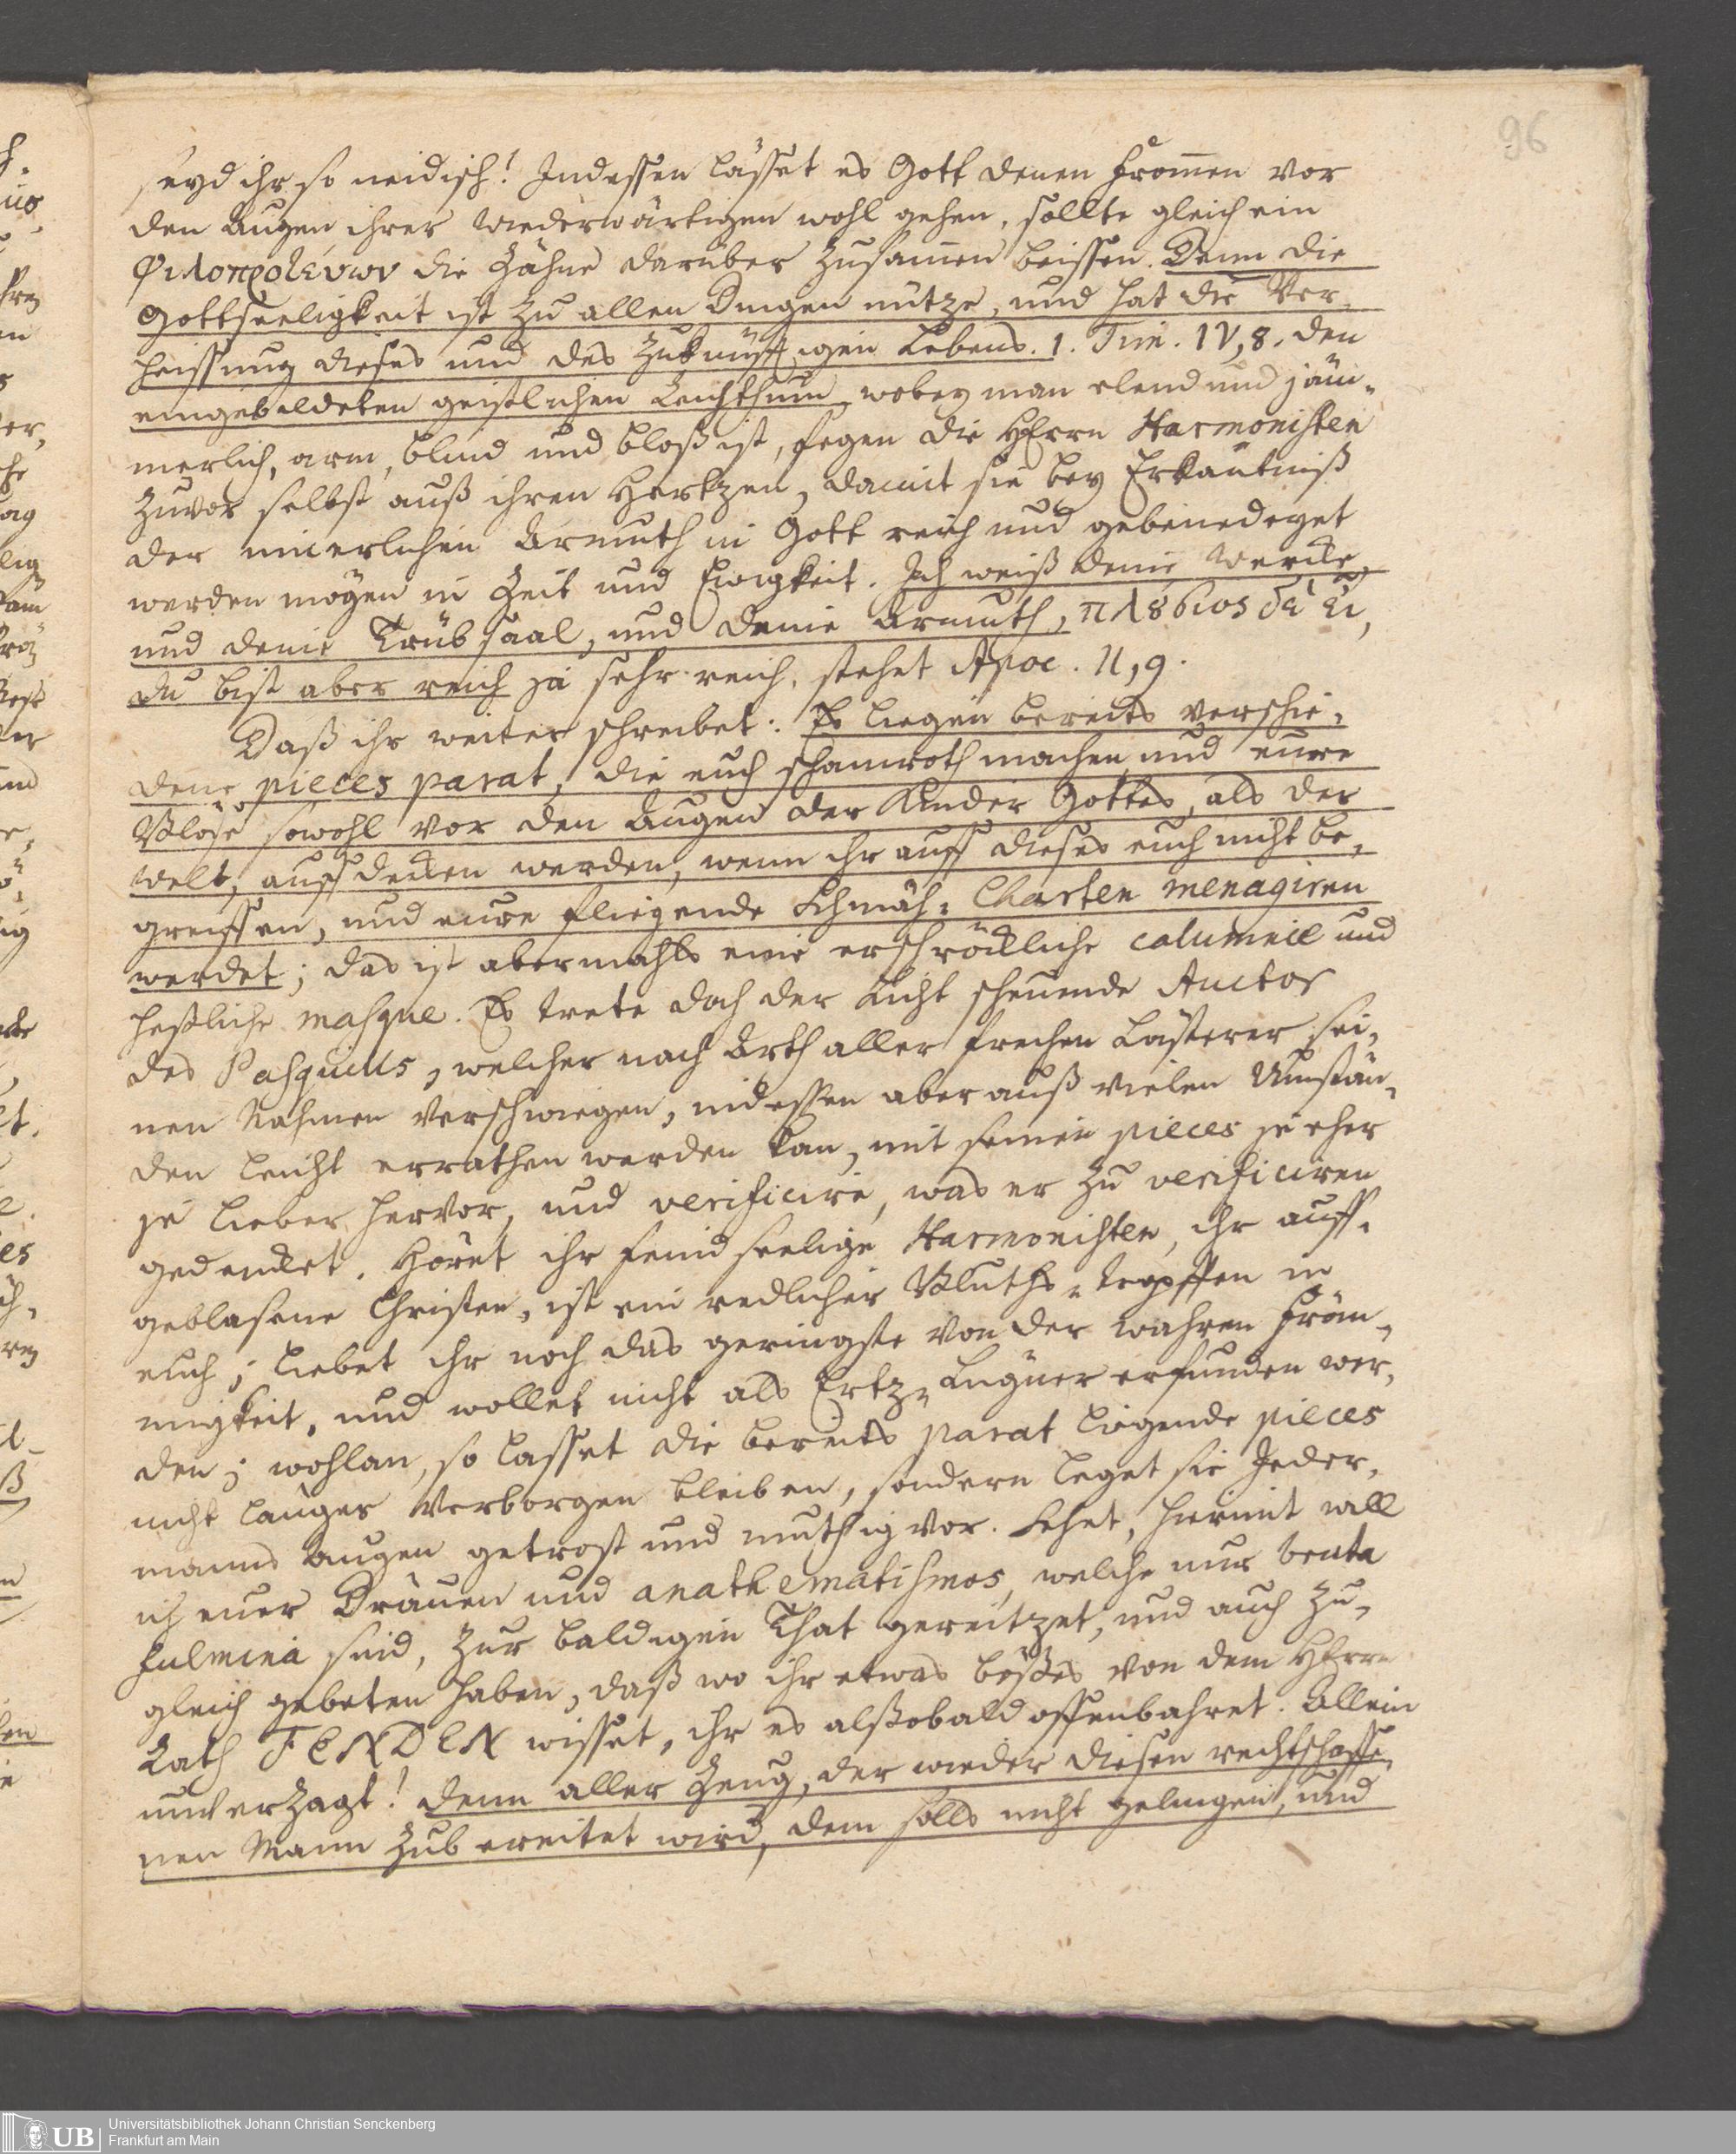 96
seyd ihr so neidisch! Indessen lässet es Gott denen From̄en vor
den Augen ihrer Wiederwärtigen wohl gehen, sollte gleich ein
die Zähne darüber zusam̄en beissen. Denn die
Gottseeligkeit ist zu allen Dingen nütze, und hat die Ver-
heissung dieses und des zukünfftigen Lebens. 1. Tim. IV, 8. den
eingebildeten geistlichen Reichthum, wobey man elend und jäm-
merlich, arm, blind und bloß ist, fegen die HErrn Harmonisten
zuvor selbst auß ihren Hertzen, damit sie bey Erkäntniß
der innerlichen Armuth in Gott reich und gebenedeyet
werden mögen in Zeit und Ewigkeit. Ich weiß deine Wercke,
und deine Trübsaal, und deine Armuth, πλȣσιος δὲ εἶ,
du bist aber reich ja sehr reich, stehet Apoc. II, 9.
Daß ihr weiter schreibet: Es liegen bereits verschie-
dene pieces parat, die euch schamroth machen und eure
Blöse sowohl vor den Augen der Kinder Gottes, als der
Welt, auffdecken werden, wenn ihr auff dieses euch nicht be-
greiffen, und eure fliegende Schmäh-Charten menagiren
werdet; das ist abermahls eine erschröckliche calumnie und
heßliche masque. Es trete doch der Licht scheuende Auctor
des Pasquills, welcher nach Arth aller frechen Lästerer sei-
nen Nahmen verschwiegen, indessen aber auß vielen Umstän-
den leicht errathen werden kan, mit seinen pieces je eher
je lieber hervor, und verificire, was er zu verificiren
gedencket. Höret ihr feindseelige Harmonisten, ihr auff-
geblasene Christen, ist ein redlicher Bluths-tropffen in
euch; liebet ihr noch das geringste von der wahren From̄-
migkeit, und wollet nicht als Ertz-Lügner erfunden wer-
den; wohlan, so lasset die bereits parat liegende pieces
nicht länger verborgen bleiben, sondern leget sie Jeder-
manns Augen getrost und muthig vor. Sehet, hiermit will
ich euer Dräuen und anathematismos, welche nur bruta
fulmina sind, zur baldigen That gereitzet, und auch zu-
gleich gebeten haben, daß wo ihr etwas böses von dem HErrn
Rath FENDEN wisset, ihr es alßobald offenbahret. Allein
unverzagt! denn aller Zeug, der wieder diesen rechtschaffe-
nen Mann zubereitet wird, dem solls nicht gelingen, und
UB
Universitätsbibliothek Johann Christian Senckenberg
Frankfurt am Main